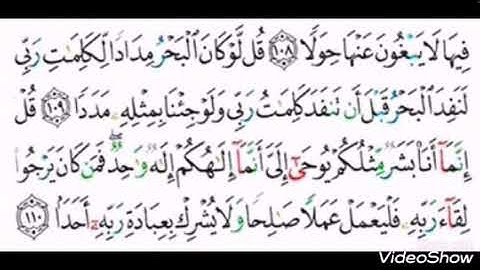 فِيهَا لَا يَبْغُونَ عَنْهَا حِوَلًا ١٠٨ قُل لَّوْ كَانَ الْبَحْرُ مِدَادًا لِّكَلِمَٰتِ رَبِّي
لَنَفِدَ الْبَحْرُ قَبْلَ أَن تَنفَدَ كَلِمَٰتُ رَبِّي وَلَوْ جِئْنَا بِمِثْلِهِۦ مَدَدًا ١٠٩ قُلْ
إِنَّمَآ أَنَا۠ بَشَرٌ مِّثْلُكُمْ يُوحَىٰٓ إِلَىَّ أَنَّمَآ إِلَٰهُكُمْ إِلَٰهٌ وَٰحِدٌ ۖ فَمَن كَانَ يَرْجُوا۟
لِقَآءَ رَبِّهِۦ فَلْيَعْمَلْ عَمَلًا صَٰلِحًا وَلَا يُشْرِكْ بِعِبَادَةِ رَبِّهِۦٓ أَحَدًۢا ١١٠
VideoShow